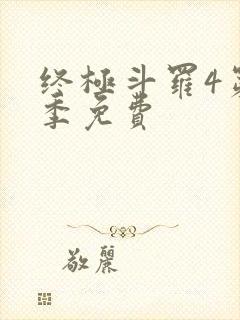 终極斗羅4第
季免費
敬麗